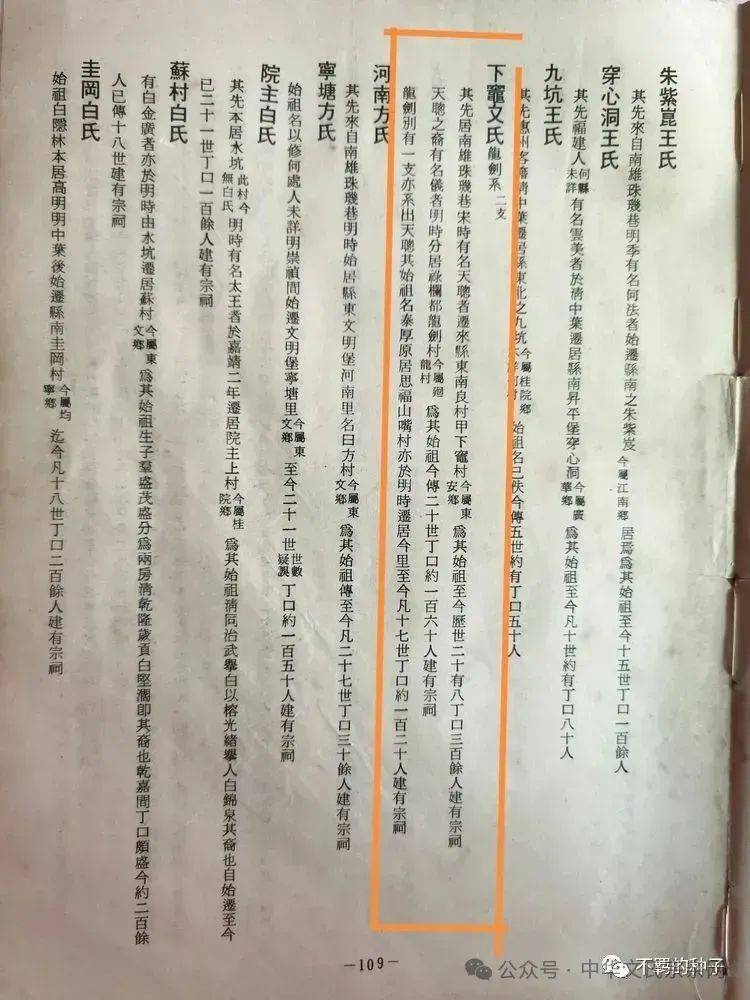 朱紫崑王氏
其先來自南雄珠璣巷明季有名何法者始遷縣南之朱紫岌今屬江南鄉居焉爲其始祖至今十五世丁口一百餘人
穿心洞王氏
其先福建人何縣未詳有名雲美者於淸中葉遷居縣南昇平堡穿心洞今屬廣華鄉爲其始祖至今凡十世約有丁口八十人
九坑王氏
其先惠州客籍淸中葉遷居縣東北之九坑今屬桂院鄉始祖名已佚今傳五世約有丁口五十人
下竈文氏龍劍系二支
其先居南雄珠璣巷宋時有名天聰者遷來縣東南良村甲下竈村今屬東安鄉爲其始祖至今歷世二十有八丁口三百餘人建有宗祠
天聰之裔有名儀者明時分居祿欄都龍劍村今屬廻龍村爲其始祖今傳二十世丁口約一百六十人建有宗祠
龍劍別有一支亦系出天聰其始祖名泰厚原居思福山嘴村亦於明時遷居今里至今凡十七世丁口約一百二十人建有宗祠
河南方氏
其先來自南雄珠璣巷明時始居縣東文明堡河南里名曰方村今屬東文鄉爲其始祖傳至今凡二十七世丁口三十餘人建有宗祠
寧塘方氏
始祖名以修何處人未詳明崇禎間始遷文明堡寧塘里今屬東文鄉至今二十一世世數疑誤丁口約一百五十人建有宗祠
院主白氏
其先本居水坑此村今無白氏明時有名太王者於嘉靖二年遷居院主上村今屬桂院鄉爲其始祖淸同治武擧白以榕光緒擧人白錦泉其裔也自始遷至今
已二十一世丁口一百餘人建有宗祠
蘇村白氏
有白金廣者亦於明時由水坑遷居蘇村今屬東文鄉爲其始祖生子羣盛茂盛分爲兩房淸乾隆歲貢白堅濶卽其裔也乾嘉間丁口頗盛今約二百餘
人已傳十八世建有宗祠
圭岡白氏
始祖白隱林本居高明明中葉後始遷縣南圭岡村今屬均寧鄉迄今凡十八世丁口二百餘人建有宗祠
—109—
公众号·中华文氏
不羁的种子